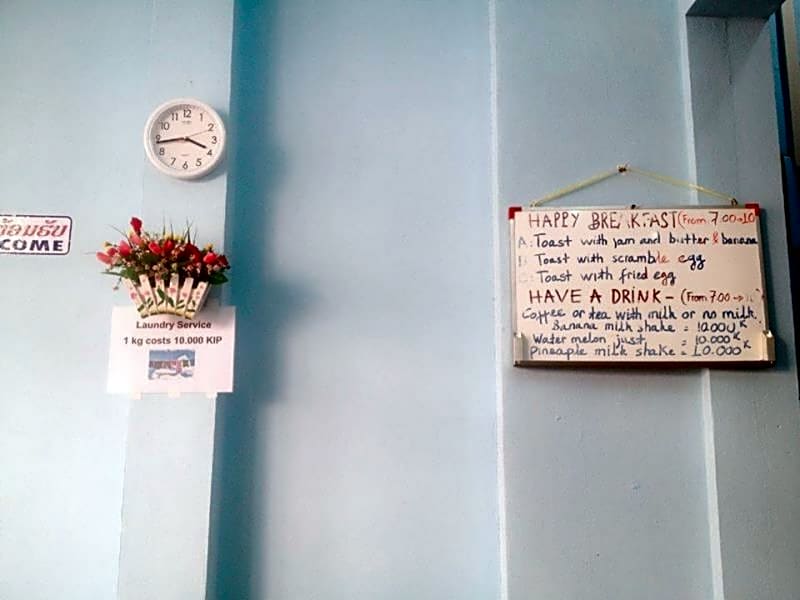 12
11
1
10
2
9
3
8
4
7
5
6
ຕ້ອນຮັບ
COME
Laundry Service
1 kg costs 10.000 KIP
HAPPY BREAKFAST (From 7.00→10
A: Toast with jam and butter & banana
B: Toast with scramble egg
C: Toast with fried egg
HAVE A DRINK - (From 7.00 →
Coffee or tea with milk or no milk.
Banana milk shake = 10.000K
Water melon just = 10.000K
Pineaple milk shake = 10.000K